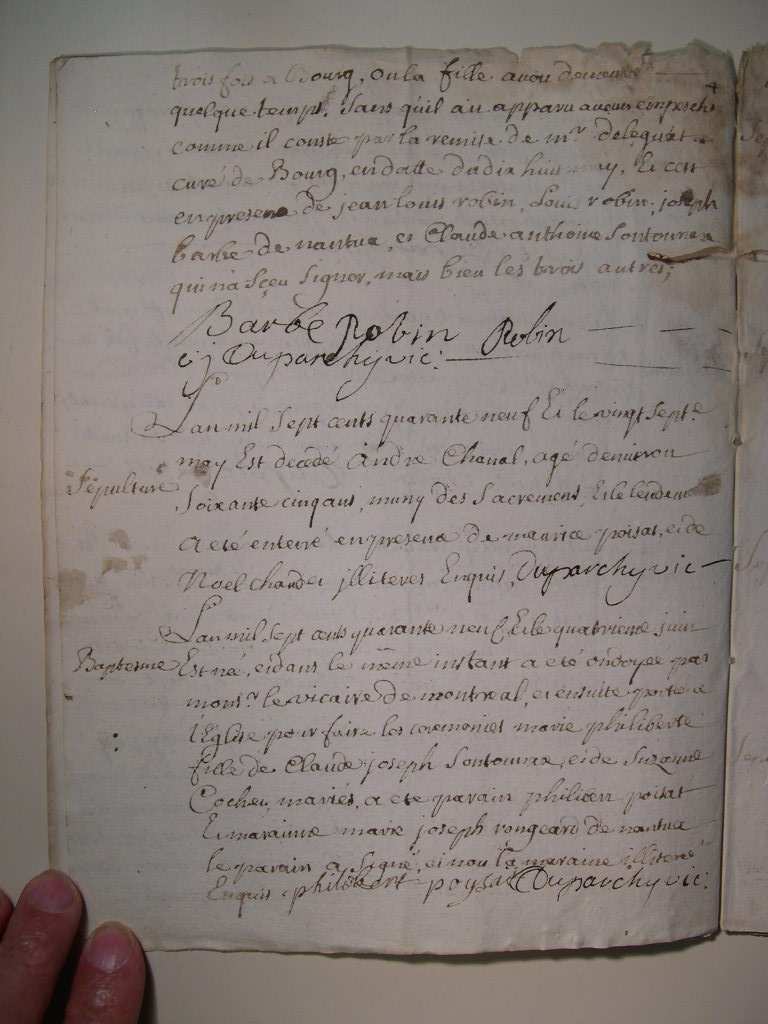 trois fois a Bourg, ou la fille avou demeuré
quelque temps, sans qu'il aii apparu aucun empesche
comme il conste par la remise de mr deléguat
curé de Bourg, en datte du dix huit may, Et cett
en presence de jean louis robin, Loui robin, joseph
barbe de nantua, et Claude anthoine Sontounax
qui n'a sçeu signer, mais bien les trois autres;
Barbe Robin Robin
Duparchy vic:
L'an mil sept cents quarante neuf Et le vingt septe
may Est decedé andré Chanal, agé denviron
Sepulture
soixante cinq ans, muny des Sacremens, Et le lendem
a eté enterré en presence de maurice poisat, et de
Noel chander illiteres Enquis, Duparchy vic
L'an mil sept cents quarante neuf, Et le quatrieme juin
Baptesme
Est née, et dans le même instant a eté ondoyée par
monsr le vicaire de montreal, et ensuite portée a
l'Eglise pour faire les ceremonies marie philiberte
fille de Claude joseph Sontounax, et de Suzanne
Cochet, mariés, a eté parain philibert poisat
Et maraine marie joseph rongeard de nantua
le parain a signé, et non la maraine illiteré
Enquis philibert poysat Duparchy vic: